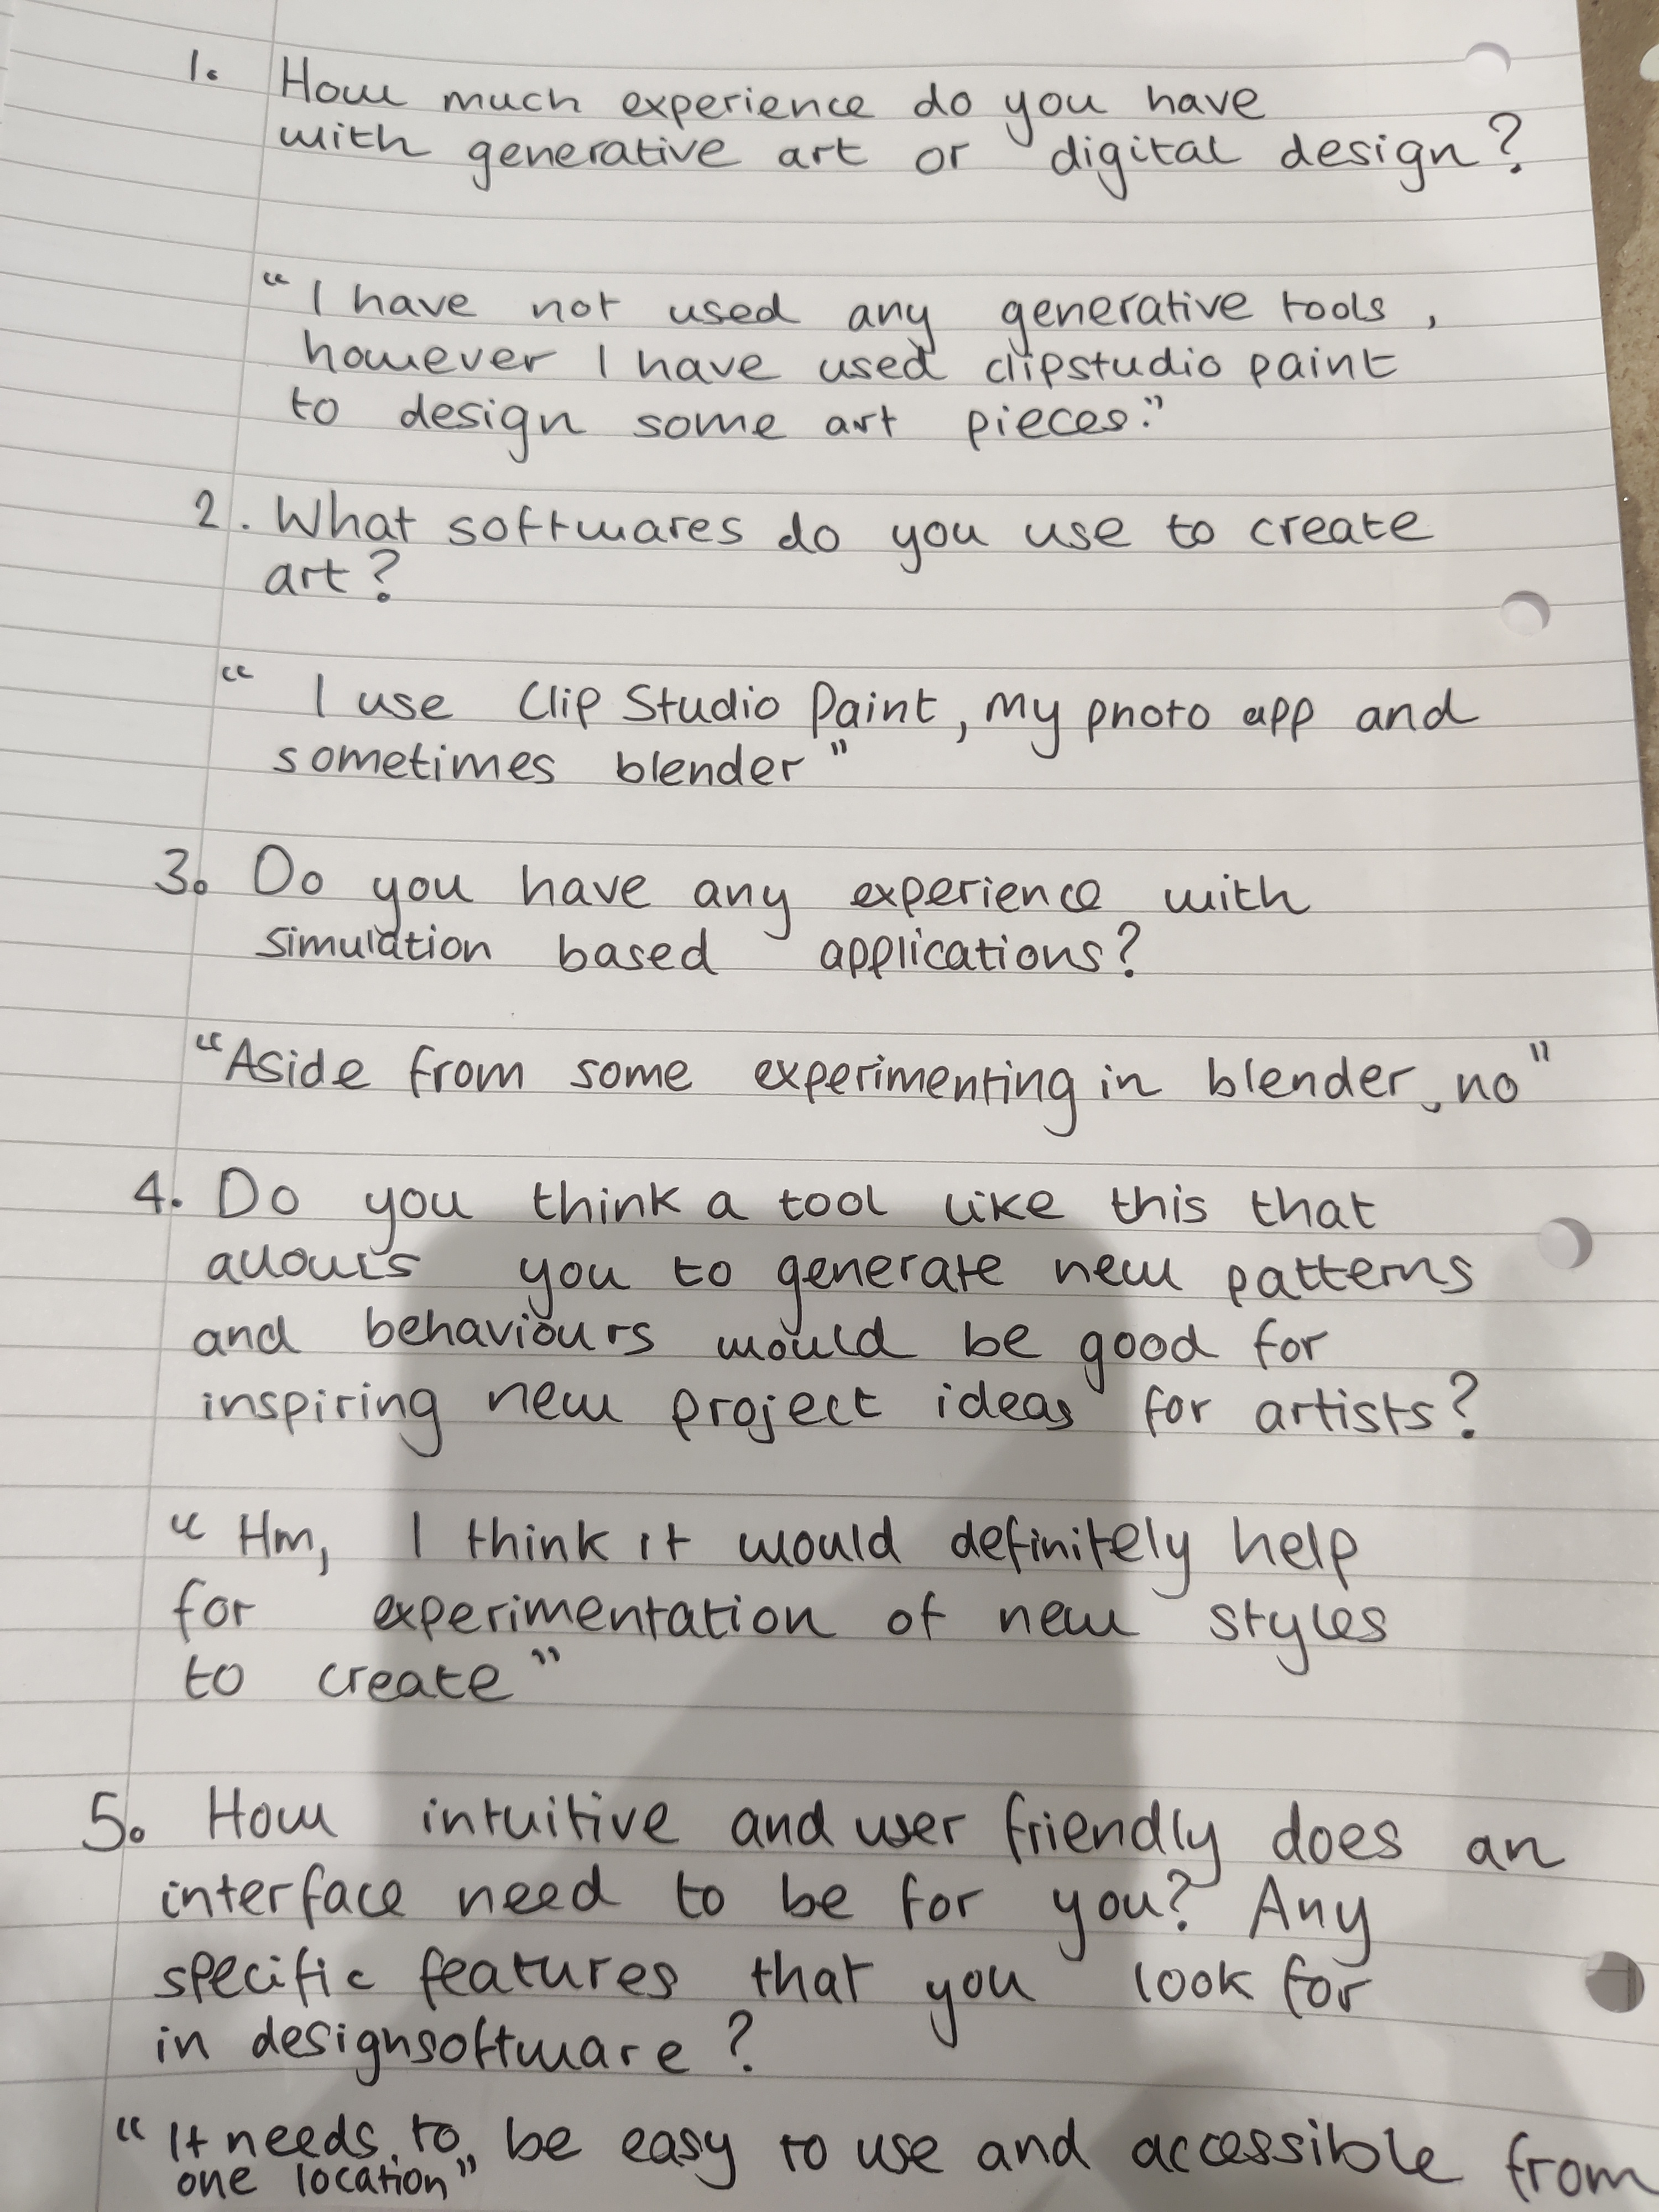 1. How much experience do you have
with generative art or digital design?
"I have not used any generative tools,
however I have used clipstudio paint
to design some art pieces."
2. What softwares do you use to create
art?
"I use Clip Studio Paint, my photo app and
sometimes blender"
3. Do you have any experience with
simulation based applications?
"Aside from some experimenting in blender, no"
4. Do you think a tool like this that
allows you to generate new patterns
and behaviours would be good for
inspiring new project ideas for artists?
"Hm, I think it would definitely help
for experimentation of new styles
to create"
5. How intuitive and user friendly does an
interface need to be for you? Any
specific features that you look for
in designsoftware?
"It needs to be easy to use and accessible from
one location"